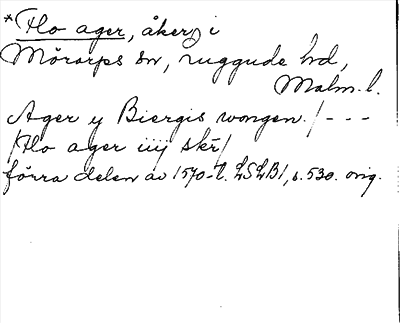 *Flo ager, åker i
Mörarps sn, Luggude hd,
Malm. l.
Ager y Biergis wongen. / - - -
/Flo ager iiij skr/
förra delen av 1570-t. LSLB1, s. 530. orig.